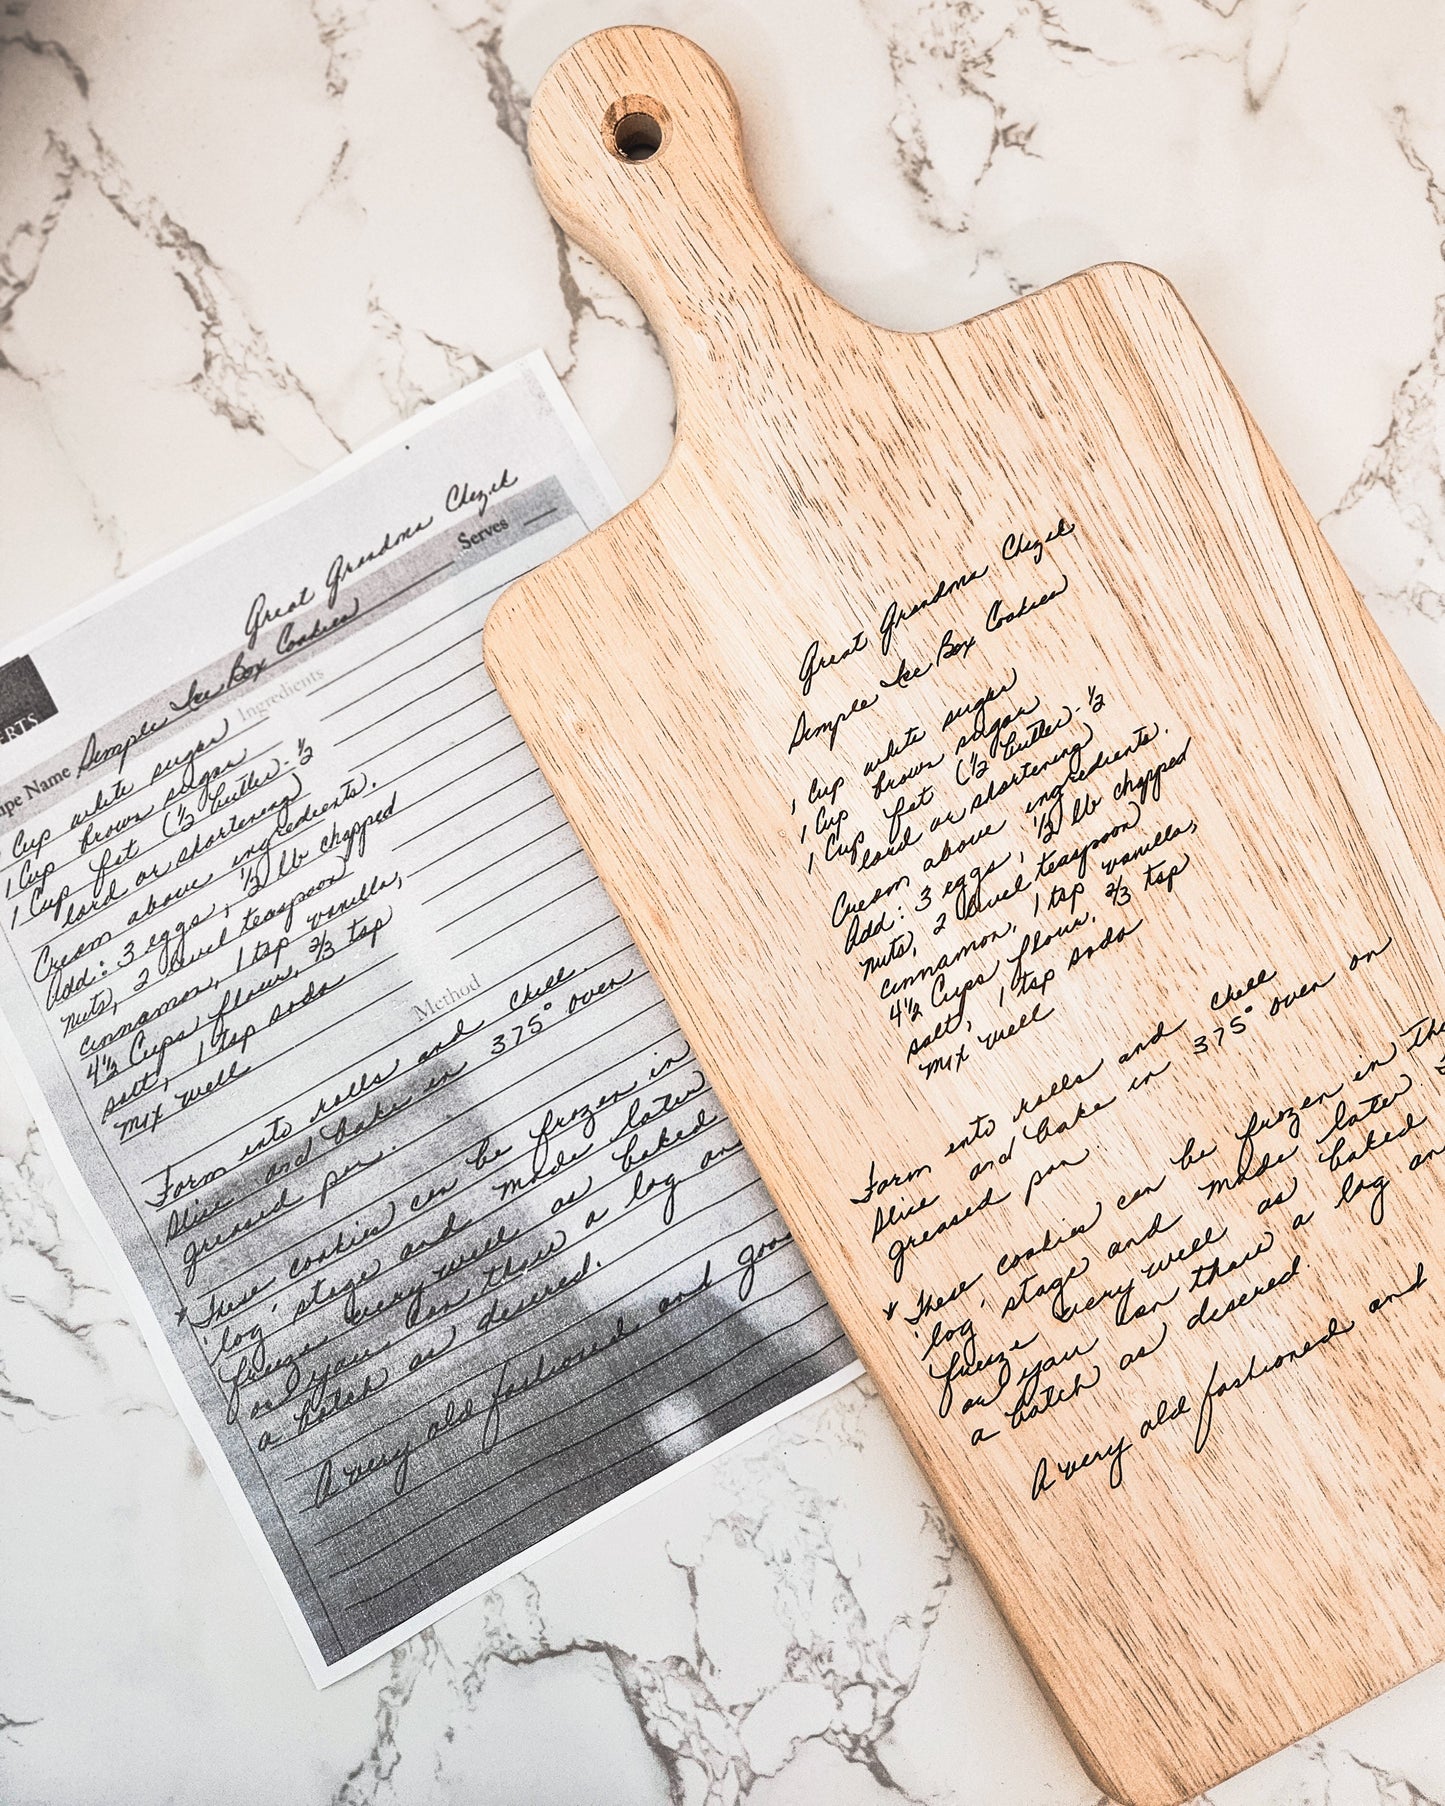 Great Grandma Chezik
Serves
ERTS
ipe Name Simple Ice Box Cookies
Ingredients
1 Cup white sugar
1 Cup brown sugar
1 Cup fat (½ butter - ½
lard or shortening)
Cream above ingredients.
Add: 3 eggs, ½ lb chopped
nuts, 2 level teaspoon
cinnamon, 1 tsp vanilla,
4½ Cups flour, ⅔ tsp
salt, 1 tsp soda
mix well
Method
Form into rolls and chill.
Slice and bake in 375° oven
greased pan.
* These cookies can be frozen in
'log' stage and made later
freeze very well as baked
or you can thaw a log an
a batch as desired.
A very old fashioned and goo
Great Grandma Chezik
Simple Ice Box Cookies
1 Cup white sugar
1 Cup brown sugar
1 Cup fat (½ butter - ½
lard or shortening)
Cream above ingredients.
Add: 3 eggs, ½ lb chopped
nuts, 2 level teaspoon
cinnamon, 1 tsp vanilla,
4½ Cups flour, ⅔ tsp
salt, 1 tsp soda
mix well
Form into rolls and chill
Slice and bake in 375° oven on
greased pan.
* These cookies can be frozen in the
'log' stage and made later.
freeze very well as baked
or you can thaw a log an
a batch as desired.
A very old fashioned and